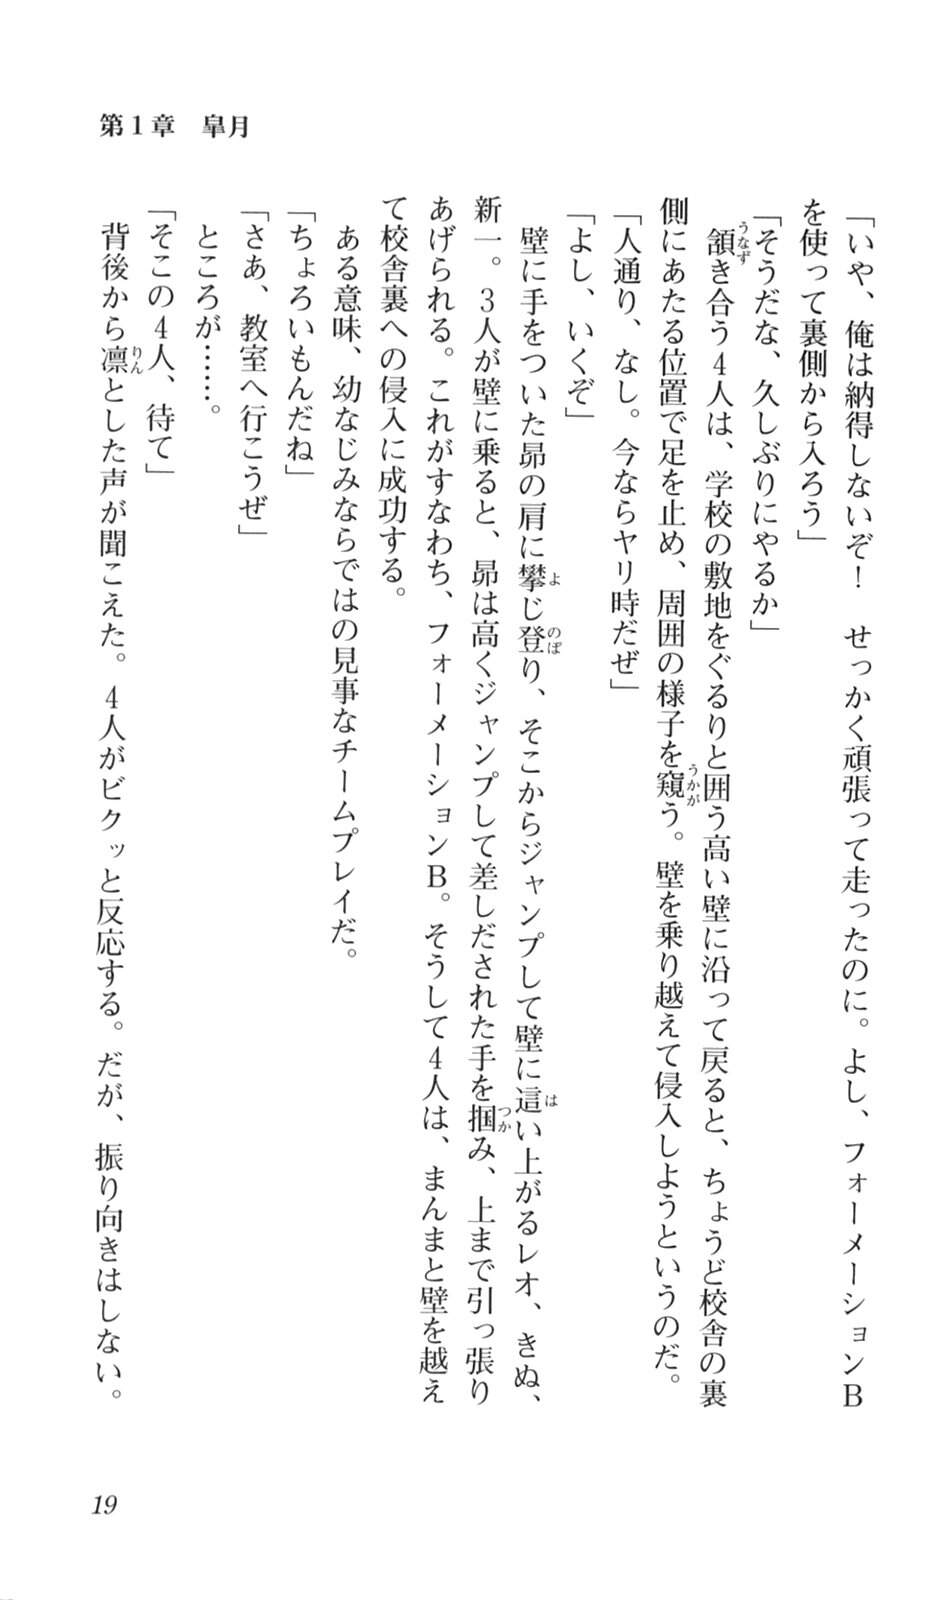 第1章　皐月
「いや、俺は納得しないぞ！　せっかく頑張って走ったのに。よし、フォーメーションB
を使って裏側から入ろう」
「そうだな、久しぶりにやるか」
頷き合う4人は、学校の敷地をぐるりと囲う高い壁に沿って戻ると、ちょうど校舎の裏
側にあたる位置で足を止め、周囲の様子を窺う。壁を乗り越えて侵入しようというのだ。
「人通り、なし。今ならヤリ時だぜ」
「よし、いくぞ」
壁に手をついた昴の肩に攀じ登り、そこからジャンプして壁に這い上がるレオ、きぬ、
新一。3人が壁に乗ると、昴は高くジャンプして差しだされた手を掴み、上まで引っ張り
あげられる。これがすなわち、フォーメーションB。そうして4人は、まんまと壁を越え
て校舎裏への侵入に成功する。
ある意味、幼なじみならではの見事なチームプレイだ。
「ちょろいもんだね」
「さあ、教室へ行こうぜ」
ところが……。
「そこの4人、待て」
背後から凛とした声が聞こえた。4人がビクッと反応する。だが、振り向きはしない。
19